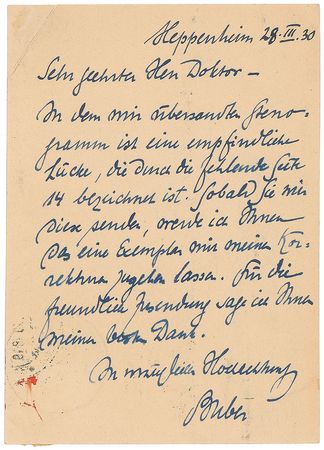 Heppenheim 28. III. 30
Sehr geehrter Herr Doktor –
In dem mir übersandten Steno-
gramm ist eine empfindliche
Lücke, die durch die fehlende Seite
14 bezeichnet ist. Sobald Sie mir
diese senden, werde ich Ihnen
das eine Exemplar mit meinen Kor-
rekturen zugehen lassen. Für die
freundliche Zusendung sage ich Ihnen
meinen Dank.
In vorzüglicher Hochachtung
Buber